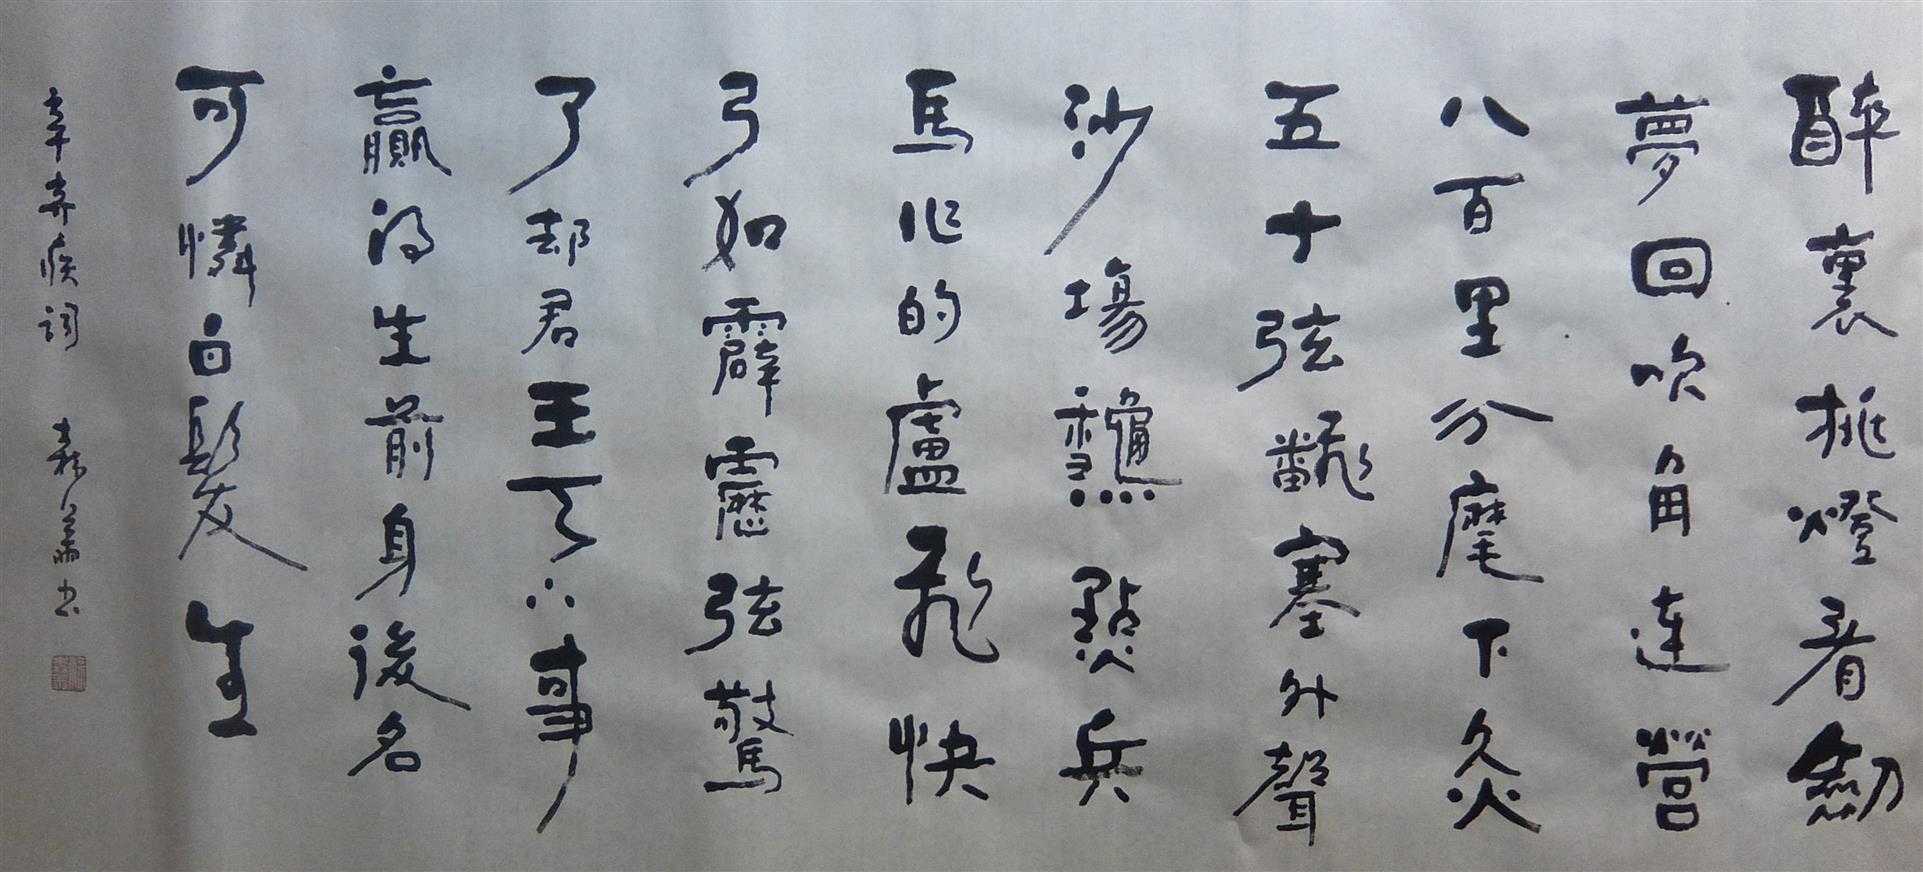 醉裏挑燈看劍
夢回吹角連營
八百里分麾下炙
五十弦飜塞外聲
沙場龝點兵
馬作的盧飛快
弓如霹靂弦驚
了却君王天下事
贏得生前身後名
可憐白髮生
辛弃疾詞 書